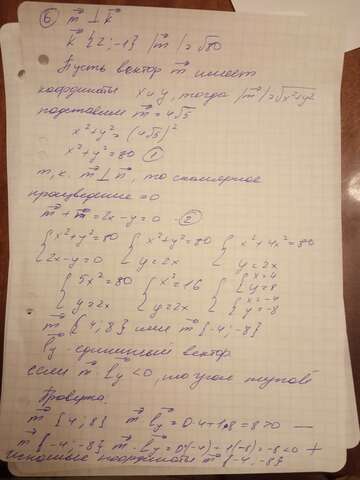 ⑥ m⃗ ⊥ k⃗
k⃗ {2; -1} |m⃗| = √80
Пусть вектор m⃗ имеет
координаты x и y, тогда |m⃗| = √x²+y²
подставим m⃗ = 4√5
x² + y² = (4√5)²
x² + y² = 80 ①
т.к. m⃗ ⊥ n⃗, то скалярное
произведение = 0
m⃗ + m⃗ = 2x - y = 0 - ②
{ x² + y² = 80 { x² + y² = 80 { x² + 4x² = 80
2x - y = 0 y = 2x y = 2x
{ 5x² = 80 { x² = 16 { x = 4
y = 2x y = 2x y = 8
{ x = -4
y = -8
m⃗ {4; 8} или m⃗ {-4; -8}
ℓy - единичный вектор
если m⃗ · ℓy < 0, то угол тупой
Проверка:
m⃗ {4; 8} m⃗ ℓy = 0·4+1·8 = 8 > 0 —
m⃗ {-4; -8} m⃗ · ℓy = 0(-4) - 1(-8) = -8 < 0 +
искомые координаты m⃗ {-4; -8}